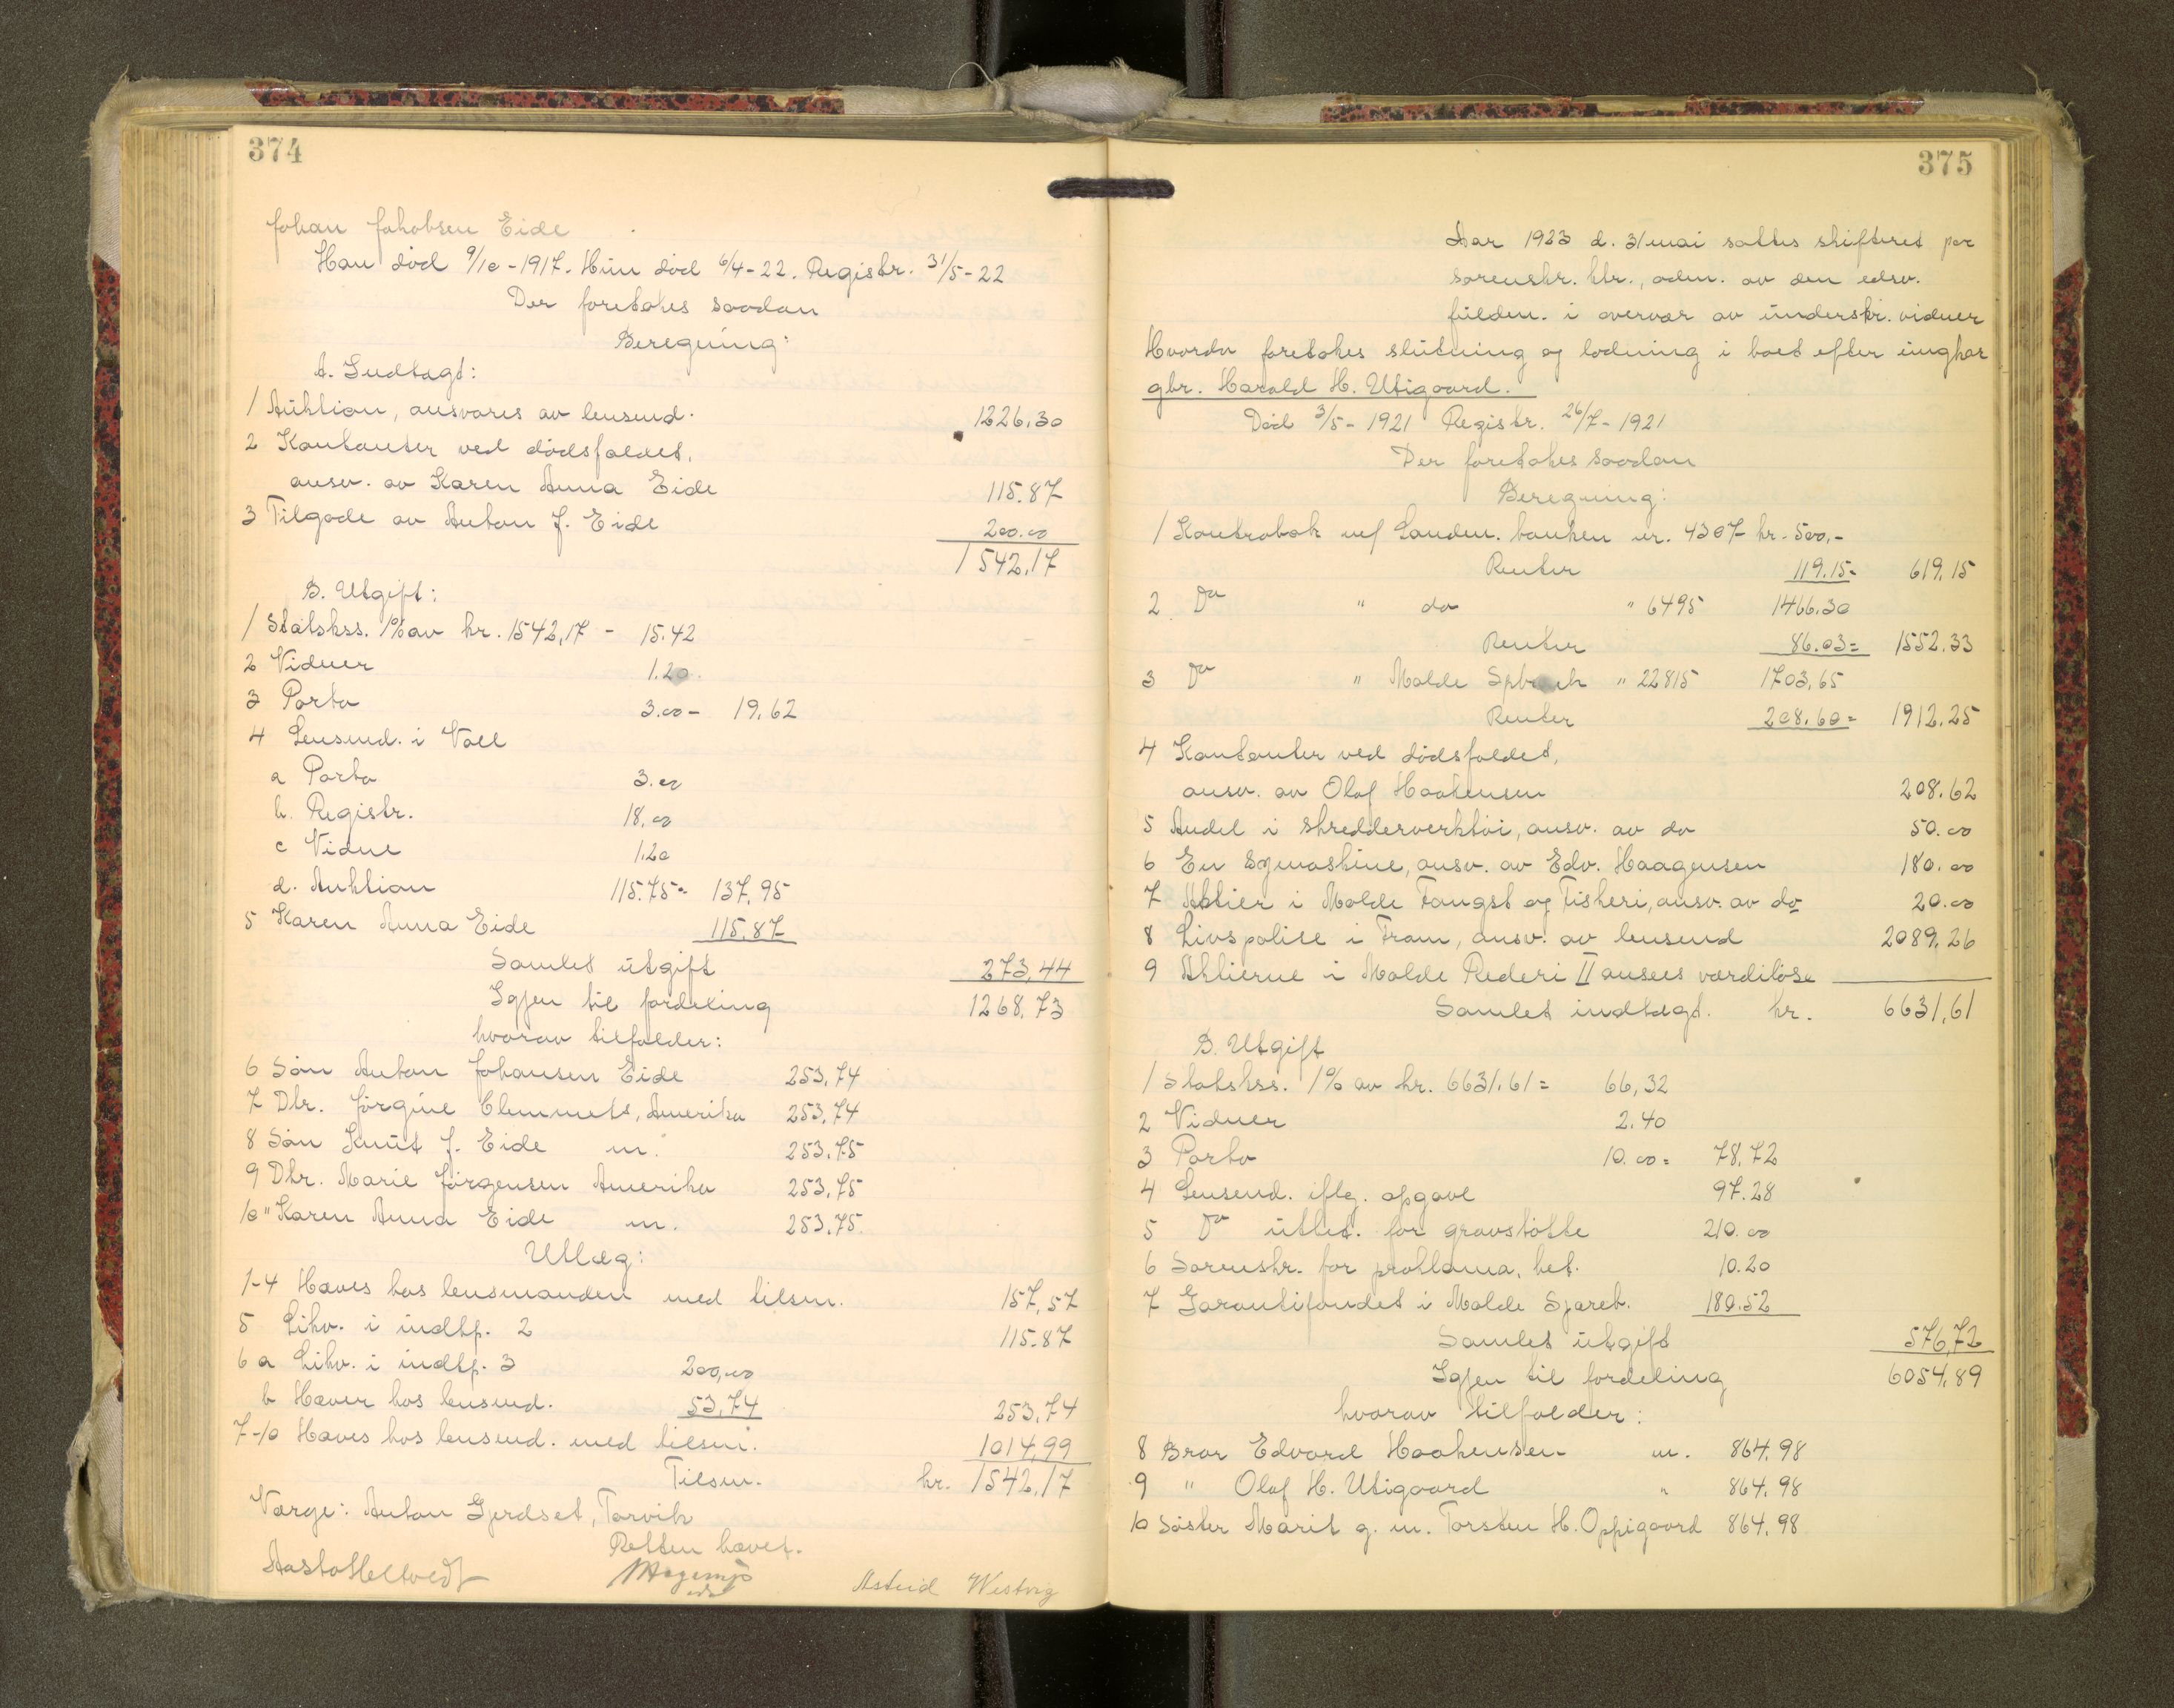 374
Johan Jakobsen Eide
Han död 9/10-1917. Hun död 6/4-22. Registr. 31/5-22
Der foretakes saadan
Beregning:
A. Indtægt:
1 Auktion, ansvares av lensmd. 1226,30
2 Kontanter ved dödsfaldet,
ansv. av Karen Anna Eide 115.87
3 Tilgode av Anton J. Eide 200.00
1542,17
B. Utgift:
1 Statskss. 1% av kr. 1542,17 - 15.42
2 Vidner 1.20
3 Porto 3.00 - 19,62
4 Lensmd. i Voll
a Porto 3.00
b. Registr. 18.00
c Vidne 1.20
d. Auktion 115.75 = 137,95
5 Karen Anna Eide 115.87
Samlet utgift 273,44
Igjen til fordeling 1268,73
hvorav tilfalder:
6 Sön Anton Johansen Eide 253,74
7 Dtr. Jörgine Clemmets, Amerika 253,74
8 Sön Knut J. Eide m. 253,75
9 Dtr. Marie Jörgensen Amerika 253,75
10 " Karen Anna Eide m. 253,75
Utlæg:
1-4 Hæves hos lensmanden med tilsm. 157,57
5 Likv. i indtp. 2 115.87
6 a Likv. i indtp. 3 200,00
b Hæver hos lensmd. 53,74 253,74
7-10 Hæves hos lensmd. med tilsm. 1014,99
Tilsm. kr. 1542,17
Værge: Anton Gjerdset, Torvik
Retten hævet.
Aasta Heltvedt
Astrid Westvig
375
Aar 1923 d. 31 mai sattes skifteret paa
sorenskr. ktr., adm. av den edsv.
fuldm. i overvær av underskr. vidner
Hvorda foretakes slutning og lodning i boet efter ungkar
gbr. Harald H. Utigaard.
Död 3/5-1921 Registr. 26/7-1921
Der foretakes saadan
Beregning:
1 Kontrabok m/ Landm. banken nr. 4307 kr. 500,-
Renter 119.15 = 619,15
2 Do " do " 6495 1466.30
Renter 86.03 = 1552.33
3 Do " Molde Spbank " 22815 1703,65
Renter 208.60 = 1912.25
4 Kontanter ved dödsfaldet,
ansv. av Olaf Haakensen 208.62
5 Andel i skredderverktöi, ansv. av do 50.00
6 En symaskine, ansv. av Edv. Haagensen 180.00
7 Aktier i Molde Fangst og Fiskeri, ansv. av do 20.00
8 Livspolise i Fram, ansv. av lensmd 2089,26
9 Aktierne i Molde Rederi II ansees værdilöse
Samlet indtægt. kr. 6631,61
B. Utgift
1 Statskss. 1% av kr. 6631.61 = 66,32
2 Vidner 2.40
3 Porto 10.00 = 78,72
4 Lensmd. iflg. opgave 97.28
5 Do utlæt. for gravstötte 210.00
6 Sorenskr. for proklama, bet. 10.20
7 Garantifondet i Molde Spareb. 180.52
Samlet utgift 576,72
Igjen til fordeling 6054,89
hvorav tilfalder:
8 Bror Edvard Haakensen m. 864.98
9 " Olaf H. Utigaard " 864.98
10 Söster Marit g. m. Torsten H. Oppigaard 864.98